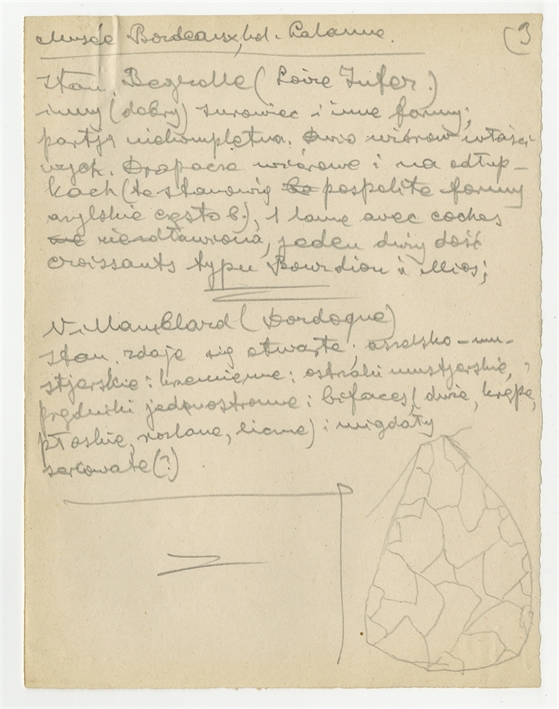 Musée Bordeaux, kol. Lalanne. (3
Stan. Begrolle (Loire Infer.)
inny (dobry) surowiec i inne formy;
partja niekompletna. Dwio wiórów właści
wych. Drapacze wiórowe i na odłup-
kach (te stanowią pospolite formy
azylskie często b.), 1 lame avec coches
niezdławiona, jeden duży dość
croissants typu Bourdiou à Mios;
Villamblard (Dordogne)
Stan. zdaje się otwarta; aszelsko-mu-
stjerskie: krzemienne: ostrzaki mustjerskie,
prądniki jednostronne i bifaces (duże, krępe,
płaskie, liczne) i migdały
sercowate (?)